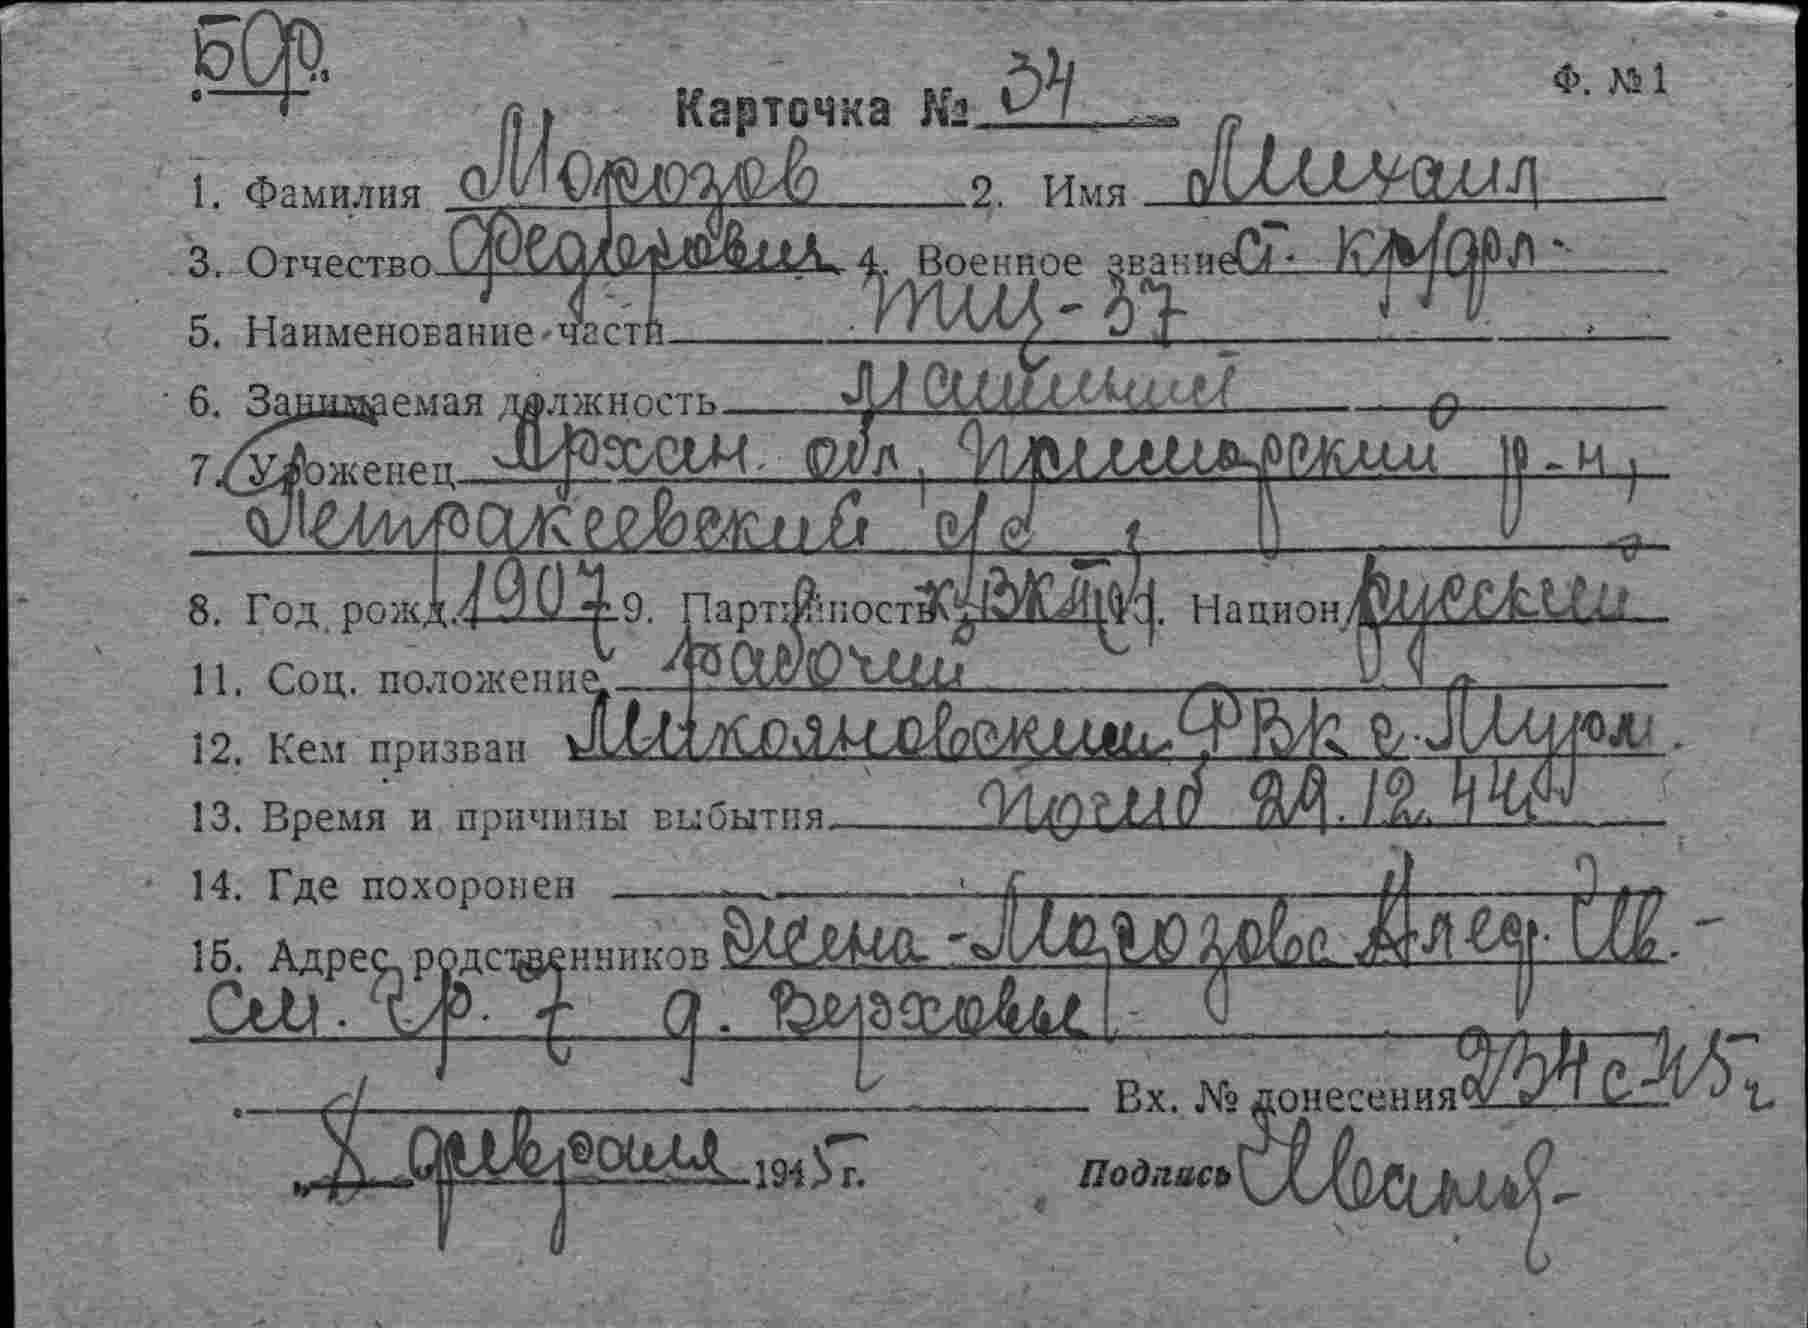 БФ.
Ф. №1
Карточка № 34
1. Фамилия Морозов 2. Имя Михаил
3. Отчество Федорович 4. Военное звание ст. кр/фл.
5. Наименование части ТЩ-37
6. Занимаемая должность машинист
7. Уроженец Архан. обл, Приморский р-н,
Петракеевский с/с
8. Год рожд. 1907 9. Партийность к. ВКП 10. Национ. русский
11. Соц. положение рабочий
12. Кем призван Микояновским РВК г. Мурм.
13. Время и причины выбытия погиб 29.12.44г
14. Где похоронен
15. Адрес родственников жена - Морозова Алед. Ив. -
См. гр. 7 д. Верховье
Вх. № донесения 234с-45г
„8 февраля 1945 г. Подпись